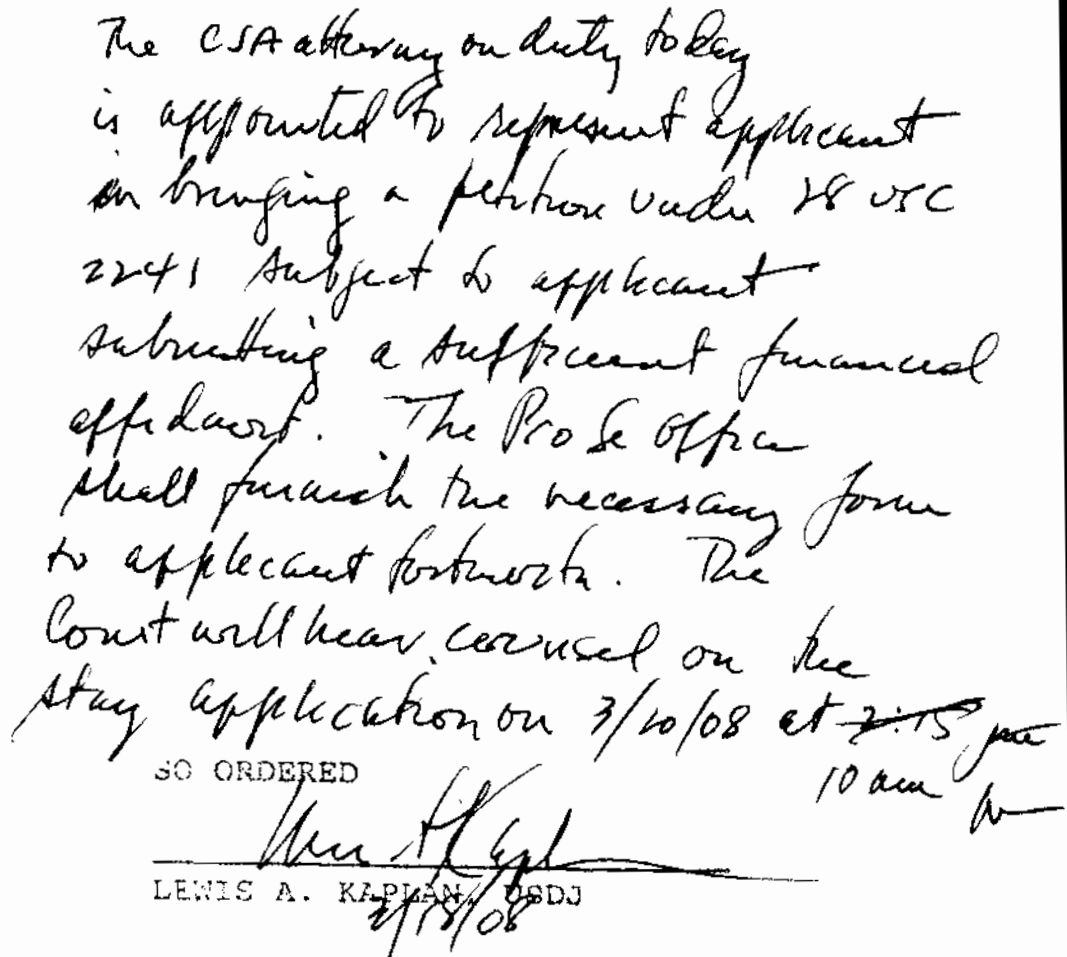 The CJA attorney on duty today
is appointed to represent applicant
in bringing a petition under 28 USC
2241 subject to applicant
submitting a sufficient financial
affidavit. The Pro Se Office
shall furnish the necessary form
to applicant forthwith. The
Court will hear counsel on the
stay application on 3/20/08 at 2:15 pm
10 am
SO ORDERED
LEWIS A. KAPLAN, USDJ
3/18/08